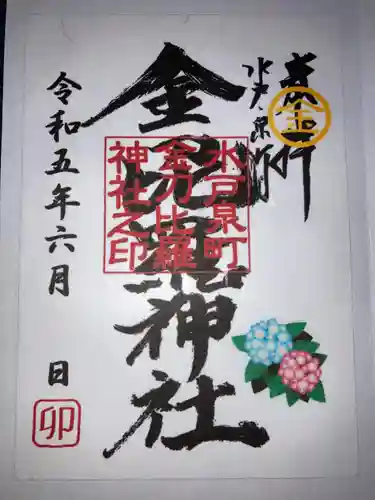 奉拝
金
水戸・泉町
金刀比羅神社
水戸泉町
金刀比羅
神社之印
令和五年六月 日
卯